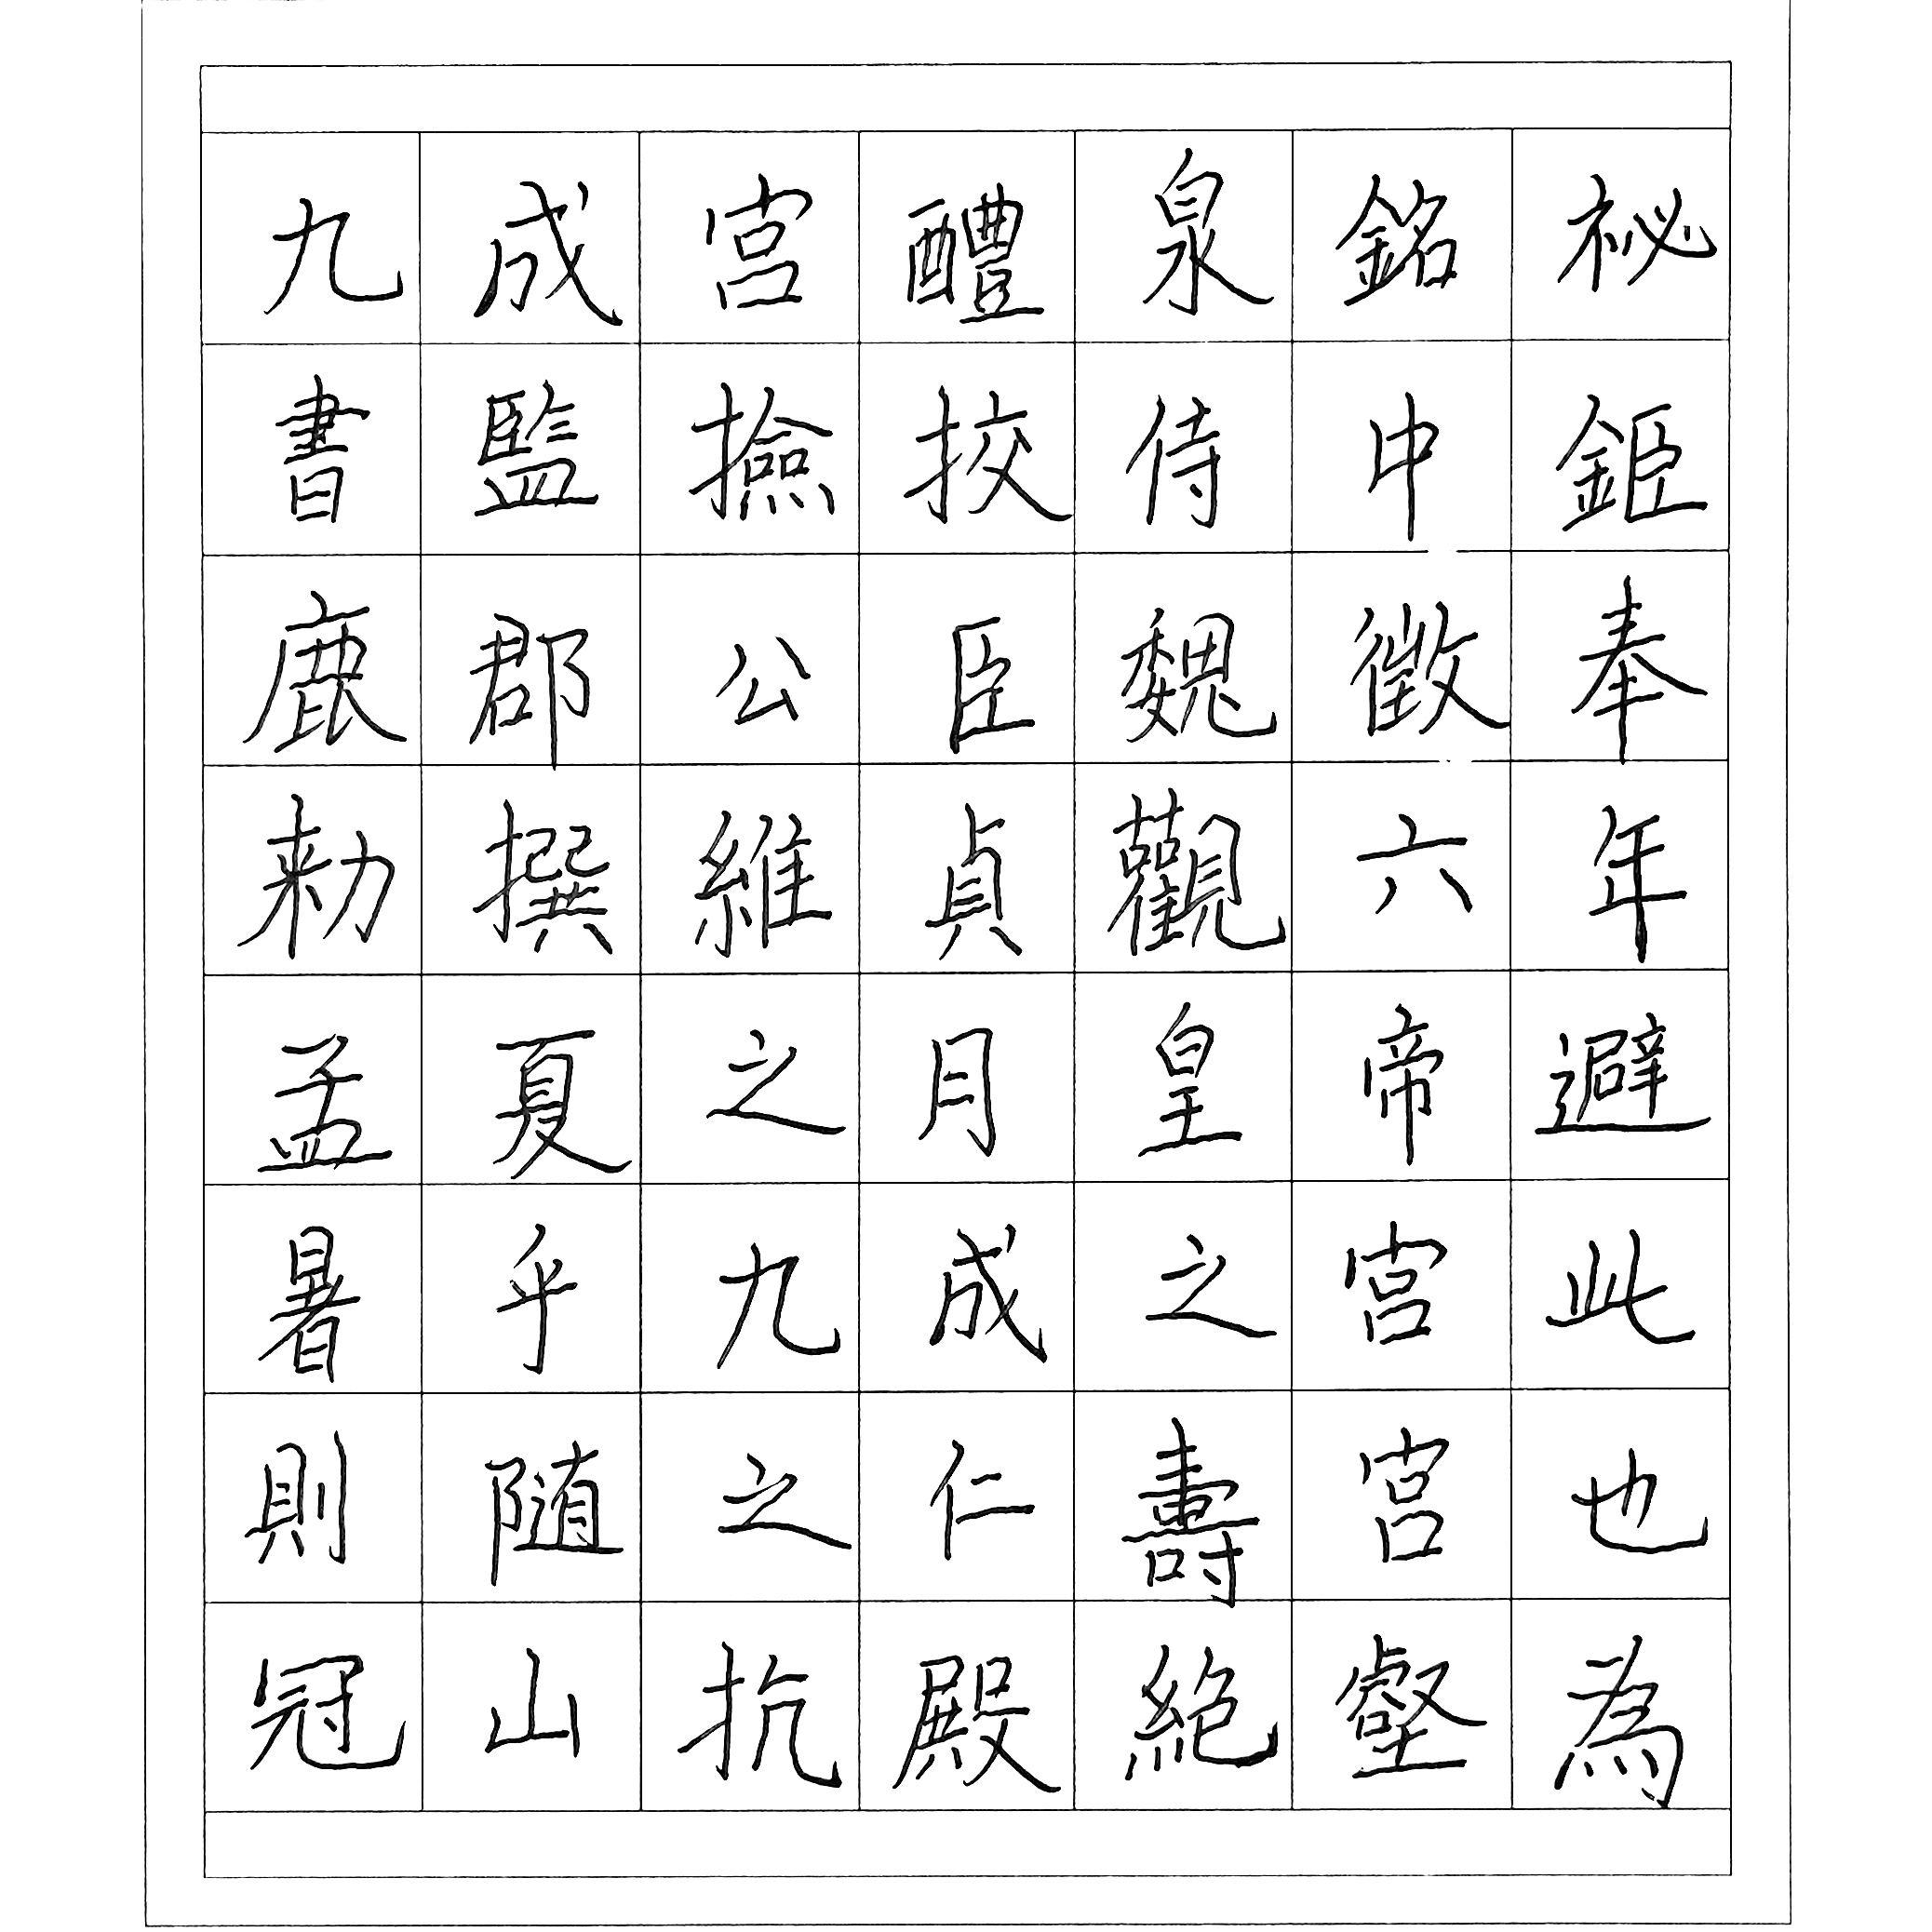 九成宮醴泉銘祕
書監撿挍侍中鉅
鹿郡公臣魏徵奉
勑撰維貞觀六年
孟夏之月皇帝避
暑乎九成之宮此
則隨之仁壽宮也
冠山抗殿絕壑為